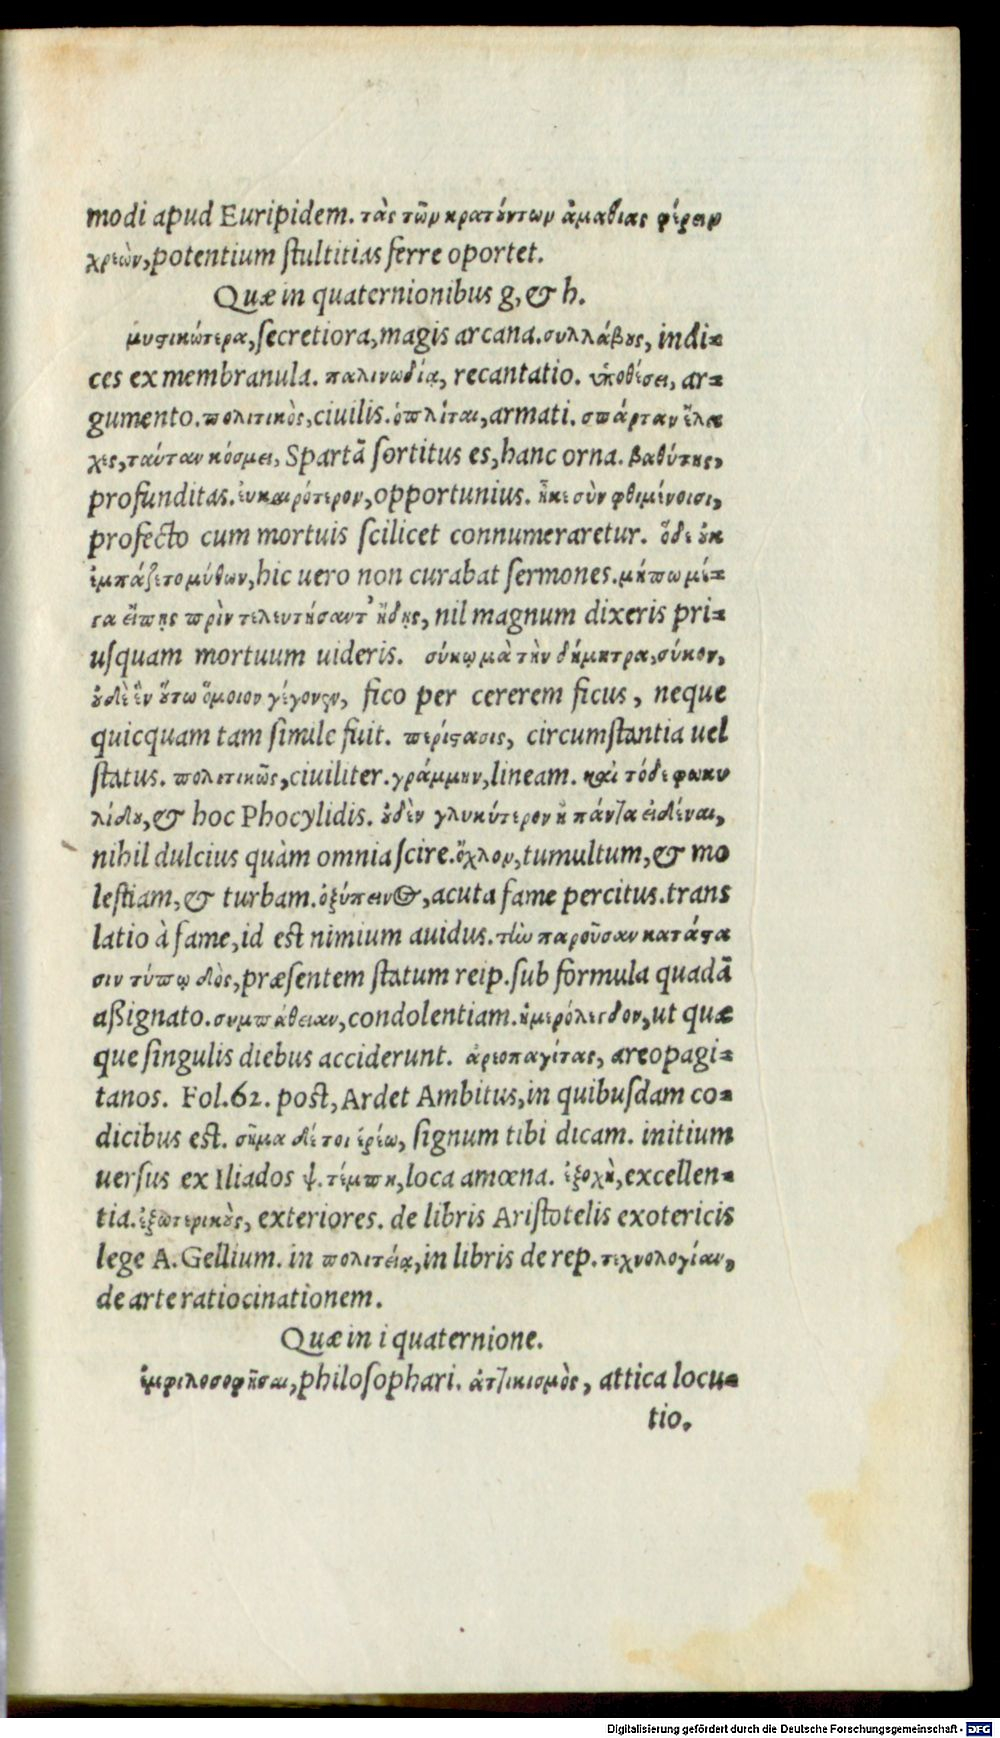 modi apud Euripidem. τὰς τῶν κρατούντων ἀμαθίας φέρειν
χρεὼν, potentium stultitias ferre oportet.
Quæ in quaternionibus g, & h.
μυστικώτερα, secretiora, magis arcana. συλλάβους, indi-
ces ex membranula. παλινωδία, recantatio. ὑποθέσει, ar-
gumento. πολιτικὸς, ciuilis. ὁπλίται, armati. σπάρταν ἔλα
χες, ταύταν κόσμει, Spartā sortitus es, hanc orna. βαθύτης,
profunditas. ἐυκαιρότερον, opportunius. ἦκε σὺν φθιμένοισι,
profecto cum mortuis scilicet connumeraretur. ὅδε ὀυκ
ἐμπάζετο μύθων, hic uero non curabat sermones. μήπω μέ-
γα εἴπῃς πρὶν τελευτήσαντ' ἤδῃς, nil magnum dixeris pri-
usquam mortuum uideris. σύκῳ μὰ τὴν δήμητρα, σύκον,
ὀυδὲ ἓν ὅυτω ὅμοιον γέγονεν, fico per cererem ficus, neque
quicquam tam simile fuit. περίστασις, circumstantia uel
status. πολιτικῶς, ciuiliter. γράμμην, lineam. καὶ τόδε φωκυ
λίδου, & hoc Phocylidis. ὀυδὲν γλυκύτερον ἢ πάντα ειδέναι,
nihil dulcius quàm omnia scire. ὄχλον, tumultum, & mo
lestiam, & turbam. ὀξύπεινος, acuta fame percitus. trans
latio à fame, id est nimium auidus. τὴν παροῦσαν κατάστα
σιν τύπῳ δὸς, præsentem statum reip. sub formula quadā
aßignato. συμπάθειαν, condolentiam. ἡμερόλεγδον, ut quæ
que singulis diebus acciderunt. ἀρεοπαγίτας, areopagi-
tanos. Fol. 62. post, Ardet Ambitus, in quibusdam co-
dicibus est. σῆμα δέ τοι ἐρέω, signum tibi dicam. initium
uersus ex Iliados ψ. τέμπη, loca amœna. ἐξοχὴ, excellen-
tia. ἐξωτερικοὺς, exteriores. de libris Aristotelis exotericis
lege A. Gellium. in πολιτείᾳ, in libris de rep. τεχνολογίαν,
de arte ratiocinationem.
Quæ in i quaternione.
ἐμφιλοσοφῆσαι, philosophari. ἀττικισμὸς, attica locu-
tio.
Digitalisierung gefördert durch die Deutsche Forschungsgemeinschaft - DFG